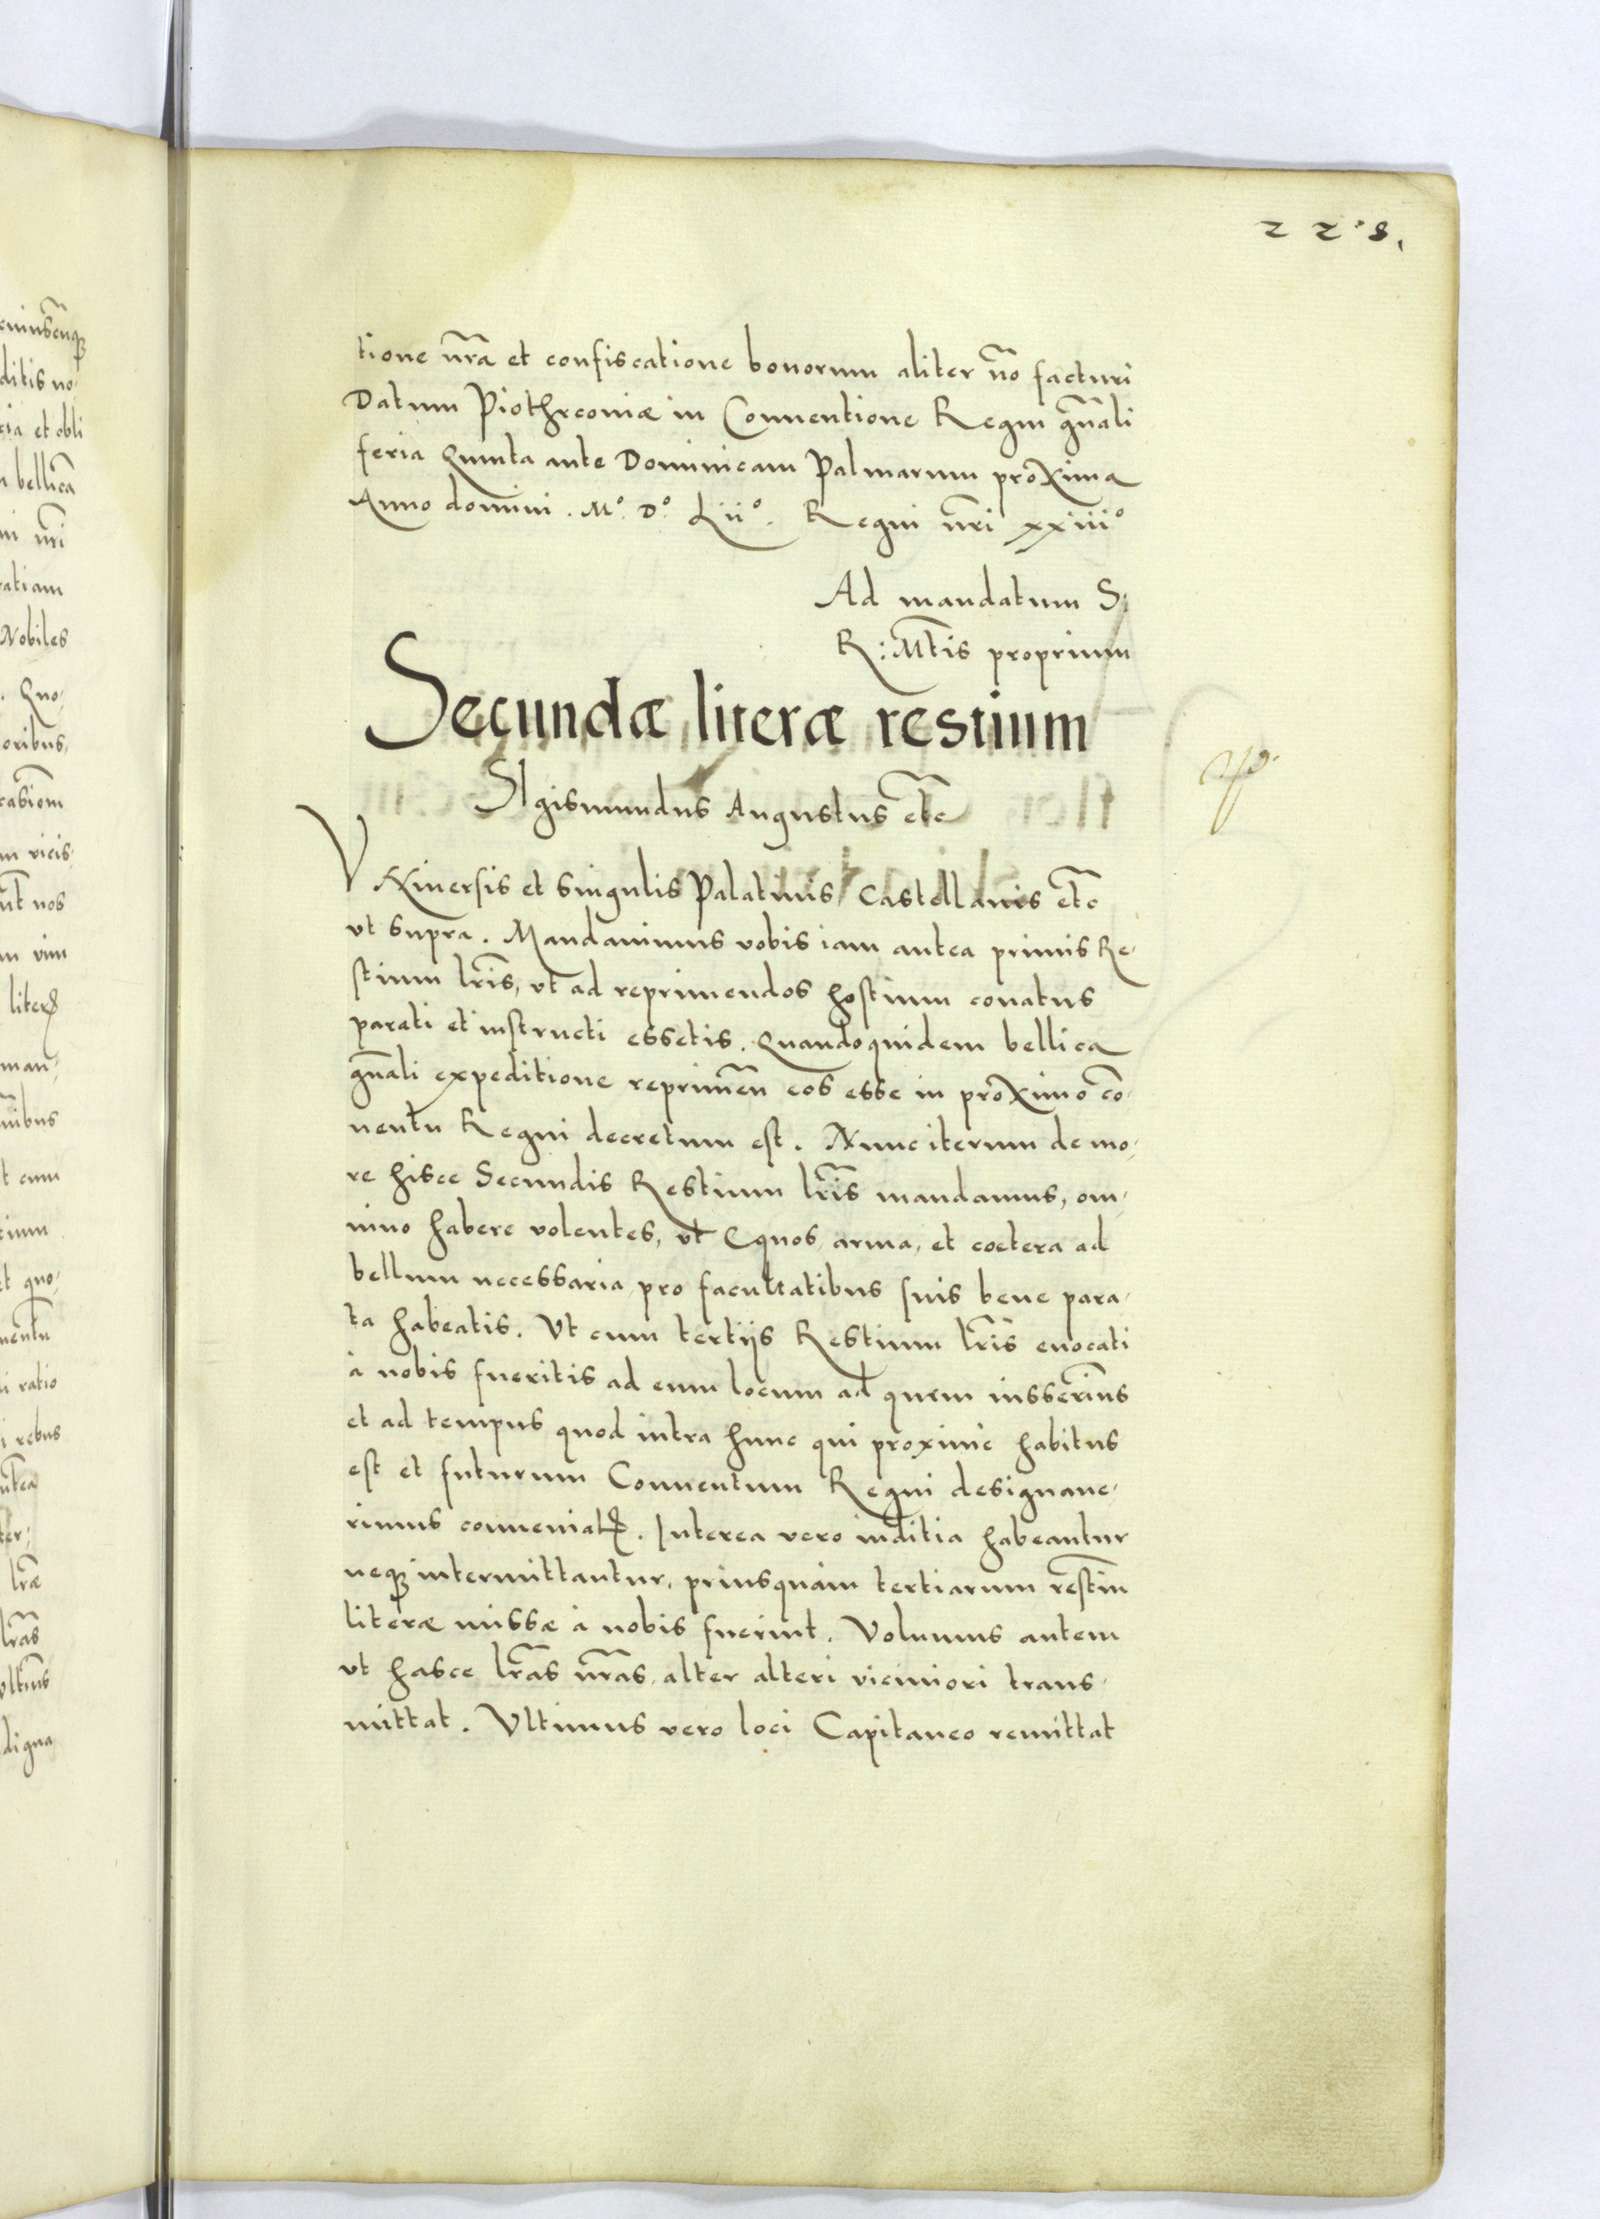 228.
tione nr̃a et confiscatione bonorum aliter nõ facturi
Datum Piothrconiæ in Conuentione Regni gñali
feria Quinta ante Dominicam Palmarum proxima
Anno domini . Mº. Dº. Liiº. Regni nr̃i xxiiiº
Ad mandatum S:
R: Mt̃is proprium
Secundæ literæ restium
SIgismundus Augustus et̃c
VNiuersis et singulis Palatinis Castellanis et̃c
vt supra. Mandauimus vobis iam antea primis Re-
stium lr̃is, vt ad reprimendos hostium conatus
parati et instructi essetis. Quandoquidem bellica
gñali expeditione reprimen̄ eos esse in proximo cõ-
uentu Regni decretum est. Nunc iterum de mo-
re hisce Secundis Restium lr̃is mandamus, om-
nino habere volentes, vt Equos, arma, et coetera ad
bellum necessaria pro facultatibus suis bene para-
ta habeatis. Vt cum tertijs Restium lr̃is euocati
à nobis fueritis ad eum locum ad quem iusserim̃s
et ad tempus quod intra hunc qui proxime habitus
est et futurum Conuentum Regni designaue-
rimus conueniatꝭ. Interea vero inditia habeantur
neqꝫ intermittantur, priusquàm tertiarum restiũ
literæ missæ à nobis fuerint. Volumus autem
vt hasce lr̃as nr̃as alter alteri viciniori trans-
mittat. Vltimus vero loci Capitaneo remittat